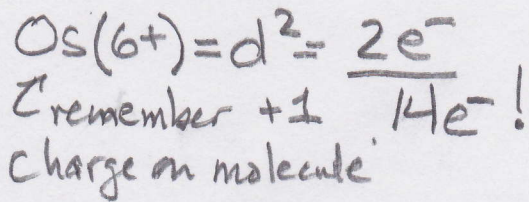 Os(6+) = d² = 2e⁻
↑ remember +1 14e⁻!
charge on molecule